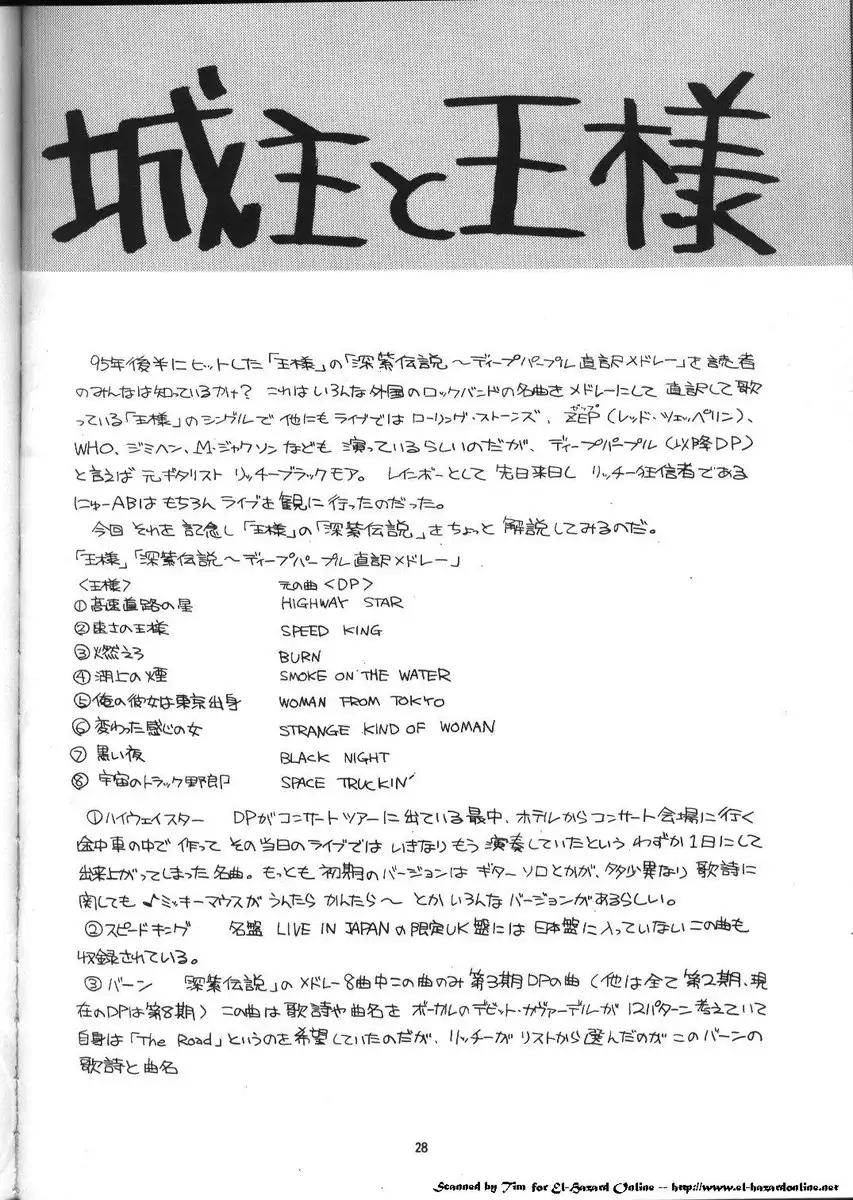 城主と王様
95年後半にヒットした「王様」の「深紫伝説～ディープパープル直訳メドレー」を読者
のみんなは知っているかナ？ これは いろんな外国のロックバンドの名曲をメドレーにして 直訳して歌
っている「王様」のシングルで 他にもライブでは ローリング・ストーンズ、ZEP(レッド・ツェッペリン)、
ゼップ
WHO、ジミヘン、M・ジャクソンなども 演っているらしいのだが、ディープパープル(以降DP)
と言えば 元ギタリスト リッチーブラックモア。 レインボーとして 先日来日し リッチー狂信者である
にゅーABはもちろん ライブを観に行ったのだった。
今回 それを記念し「王様」の「深紫伝説」をちょっと 解説してみるのだ。
「王様」「深紫伝説～ディープパープル直訳メドレー」
<王様> 元の曲<DP>
①高速道路の星 HIGHWAY STAR
②速さの王様 SPEED KING
③燃えろ BURN
④湖上の煙 SMOKE ON THE WATER
⑤俺の彼女は東京出身 WOMAN FROM TOKYO
⑥変わった感じの女 STRANGE KIND OF WOMAN
⑦黒い夜 BLACK NIGHT
⑧宇宙のトラック野郎 SPACE TRUCKIN'
①ハイウェイスター DPがコンサートツアーに出ている最中、ホテルからコンサート会場に行く
途中車の中で 作って その当日のライブでは いきなりもう 演奏していたという わずか1日にして
出来上がってしまった名曲。もっとも 初期のバージョンは ギターソロとかが、多少異なり 歌詩に
関しても ♪ミッキーマウスが うんたら かんたら～ とか いろんな バージョンがあるらしい。
②スピードキング 名盤 LIVE IN JAPANの限定UK盤には 日本盤に入っていない この曲も
収録されている。
③バーン 「深紫伝説」のメドレー8曲中この曲のみ 第3期DPの曲(他は全て 第2期、現
在のDPは第8期) この曲は歌詩や曲名を ボーカルのデビット・カヴァーデルが 12パターン考えていて
自身は「The Road」というのを希望していたのだが、リッチーがリストから選んだのが このバーンの
歌詩と曲名
28
Scanned by Tim for El-Hazard Online -- http://www.el-hazardonline.net